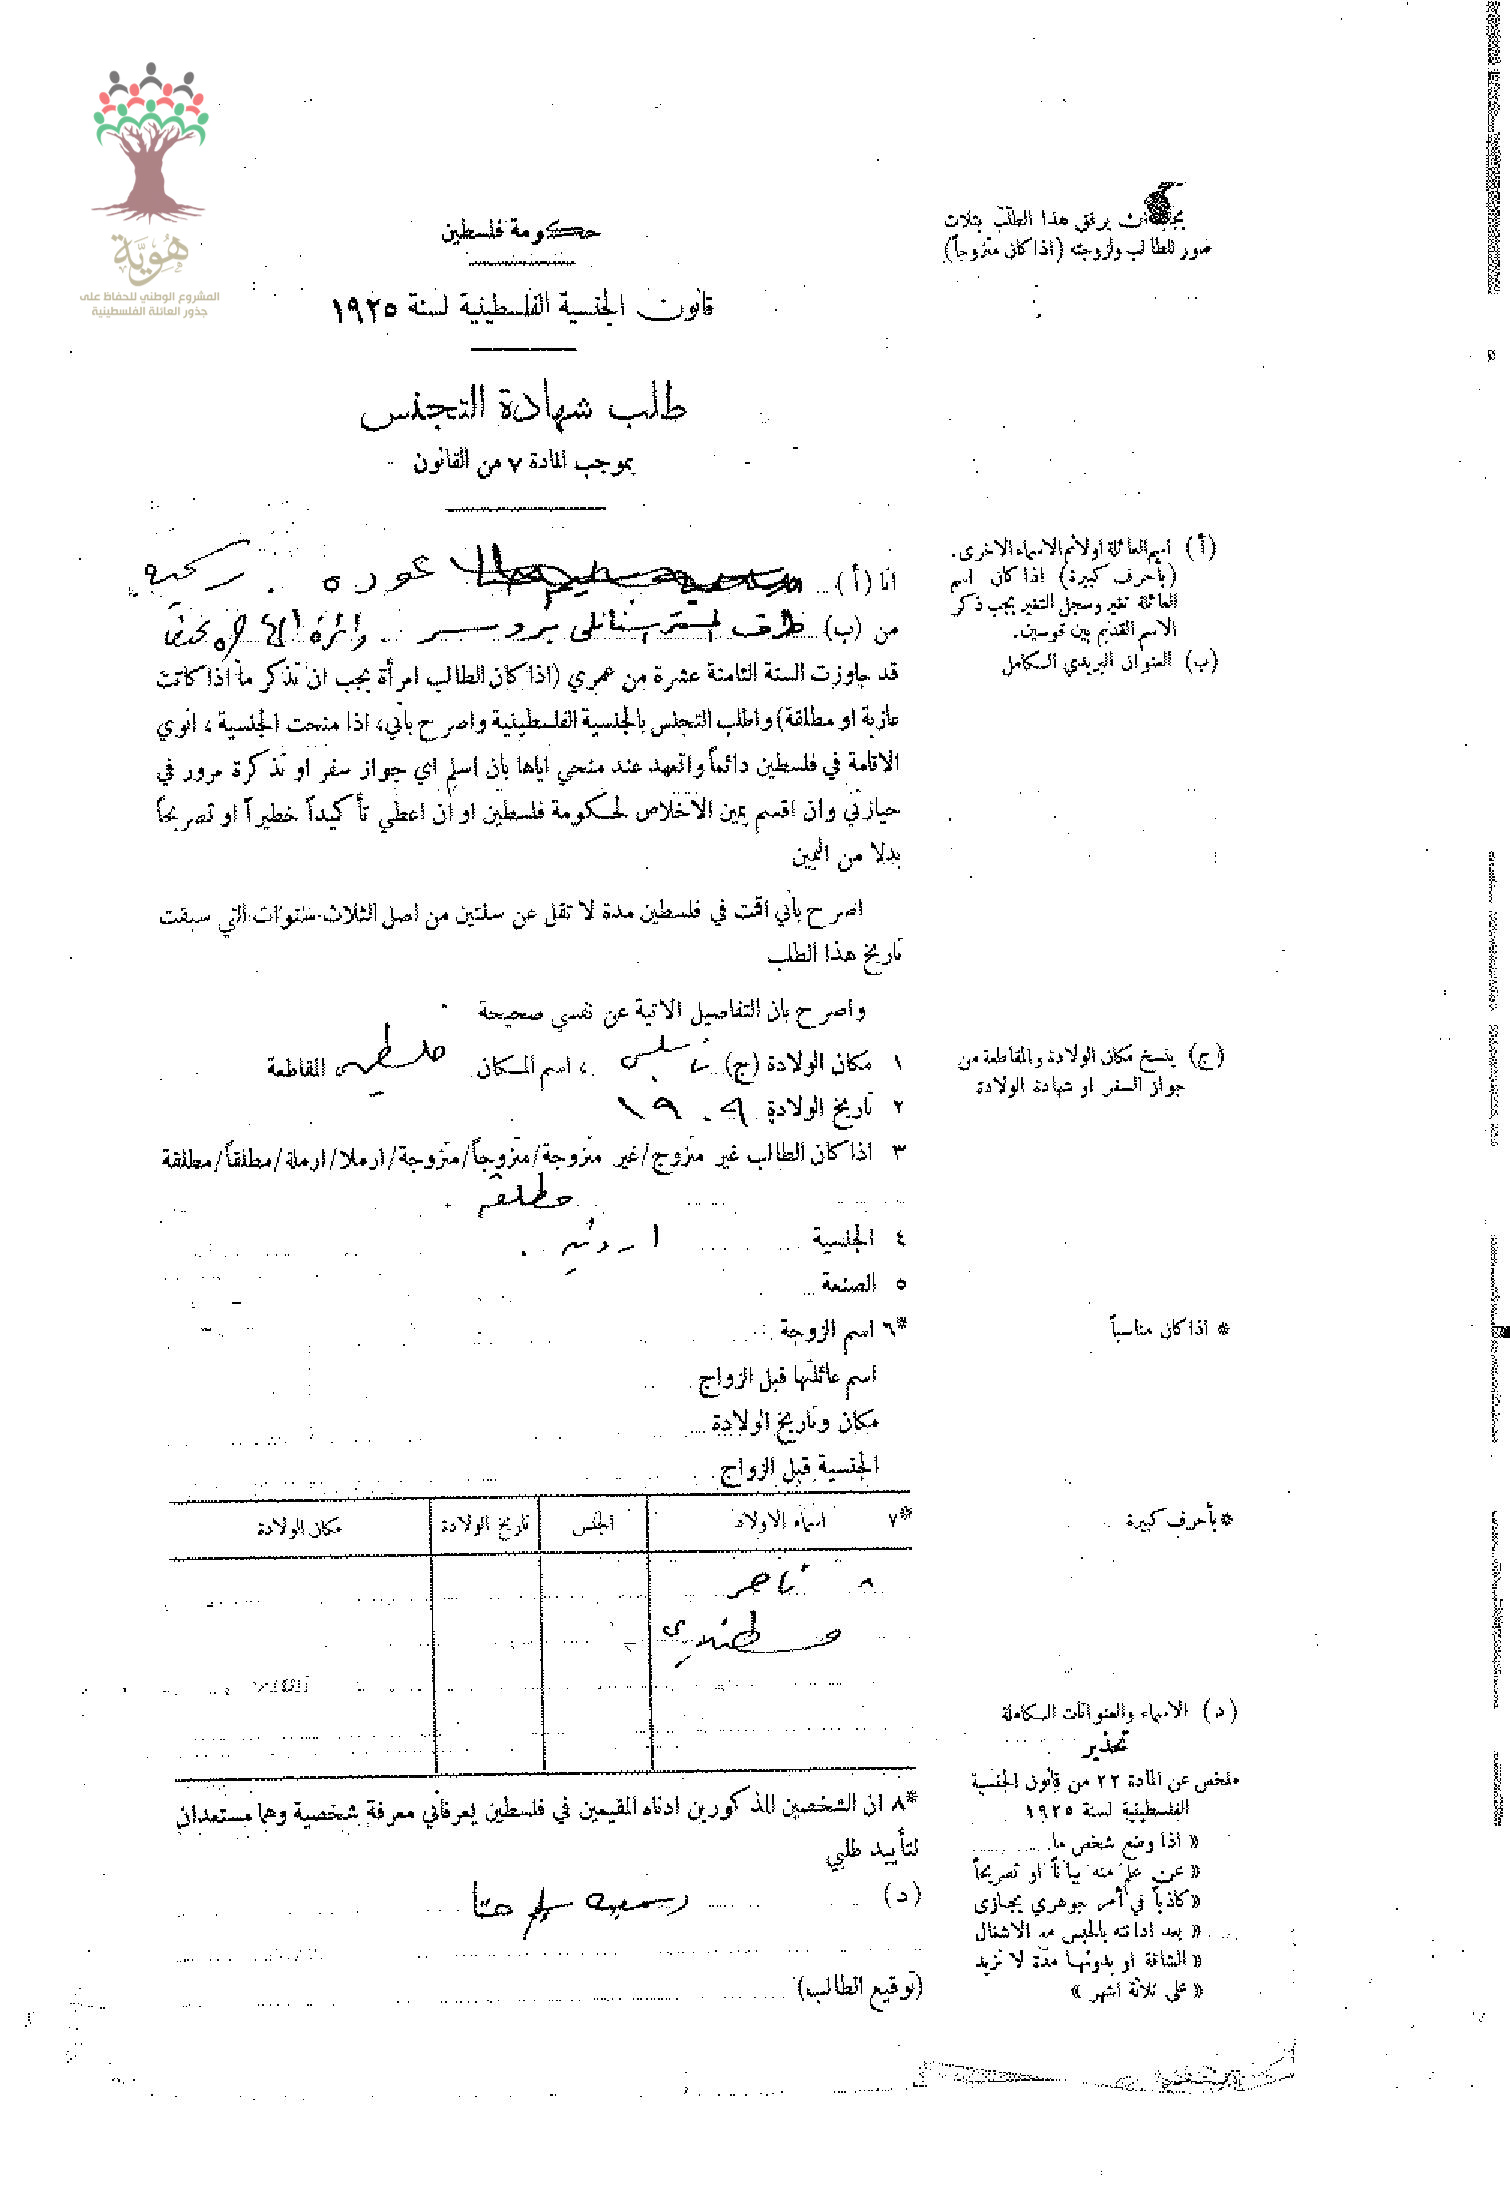 هُوِيَّة
المشروع الوطني للحفاظ على
جذور العائلة الفلسطينية
يجب ان يرفق هذا الطلب بثلاث
صور للطالب ولزوجته (اذا كان متزوجاً)
حكومة فلسطين
قانون الجنسية الفلسطينية لسنة ١٩٢٥
طلب شهادة التجنس
بموجب المادة ٧ من القانون
(أ) اسم العائلة اولا ثم الاسماء الاخرى.
(بأحرف كبيرة) اذا كان اسم
العائلة تغير وسجل التغير يجب ذكر
الاسم القديم بين قوسين.
(ب) العنوان البريدي الكامل
انا (أ) عوده
من (ب) طرف المستر ستانلي دائرة
قد جاوزت السنة الثامنة عشرة من عمري (اذا كان الطالب امرأة يجب ان تذكر ما اذا كانت
عازبة او مطلقة) واطلب التجنس بالجنسية الفلسطينية واصرح بأني، اذا منحت الجنسية، انوي
الاقامة في فلسطين دائماً واتعهد عند منحي اياها بان اسلم اي جواز سفر او تذكرة مرور في
حيازتي وان اقسم يمين الاخلاص لحكومة فلسطين او ان اعطي تأكيداً خطيراً او تصريحاً
بدلا من اليمين
اصرح بأني اقمت في فلسطين مدة لا تقل عن سنتين من اصل الثلاث سنوات التي سبقت
تاريخ هذا الطلب
واصرح بان التفاصيل الاتية عن نفسي صحيحة
(ج) ينسخ مكان الولادة والمقاطعة من
جواز السفر او شهادة الولادة
١ مكان الولادة (ج) نابلس ، اسم المكان فلسطين المقاطعة
٢ تاريخ الولادة ١٩٠٩
٣ اذا كان الطالب غير متزوج/غير متزوجة/متزوجاً/متزوجة/ارملا/ارملة/مطلقاً/مطلقة
مطلقه
٤ الجنسية اردنيه
٥ الصنعة
* اذا كان مناسباً
*٦ اسم الزوجة
اسم عائلتها قبل الزواج
مكان وتاريخ الولادة
الجنسية قبل الزواج
* بأحرف كبيرة
*٧ اسماء الاولاد الجنس تاريخ الولادة مكان الولادة
٨ ناصر
(د) الاسماء والعنوانات الكاملة
تحذير
ملخص عن المادة ٢٢ من قانون الجنسية
الفلسطينية لسنة ١٩٢٥
« اذا وضع شخص ما
« عن علم منه بياناً او تصريحاً
« كاذباً في أمر جوهري يجازى
« بعد ادانته بالحبس مع الاشغال
« الشاقة او بدونها مدة لا تزيد
« على ثلاثة اشهر »
*٨ ان الشخصين المذكورين ادناه المقيمين في فلسطين يعرفاني معرفة شخصية وهما مستعدان
لتأييد طلبي
(د)
(توقيع الطالب)